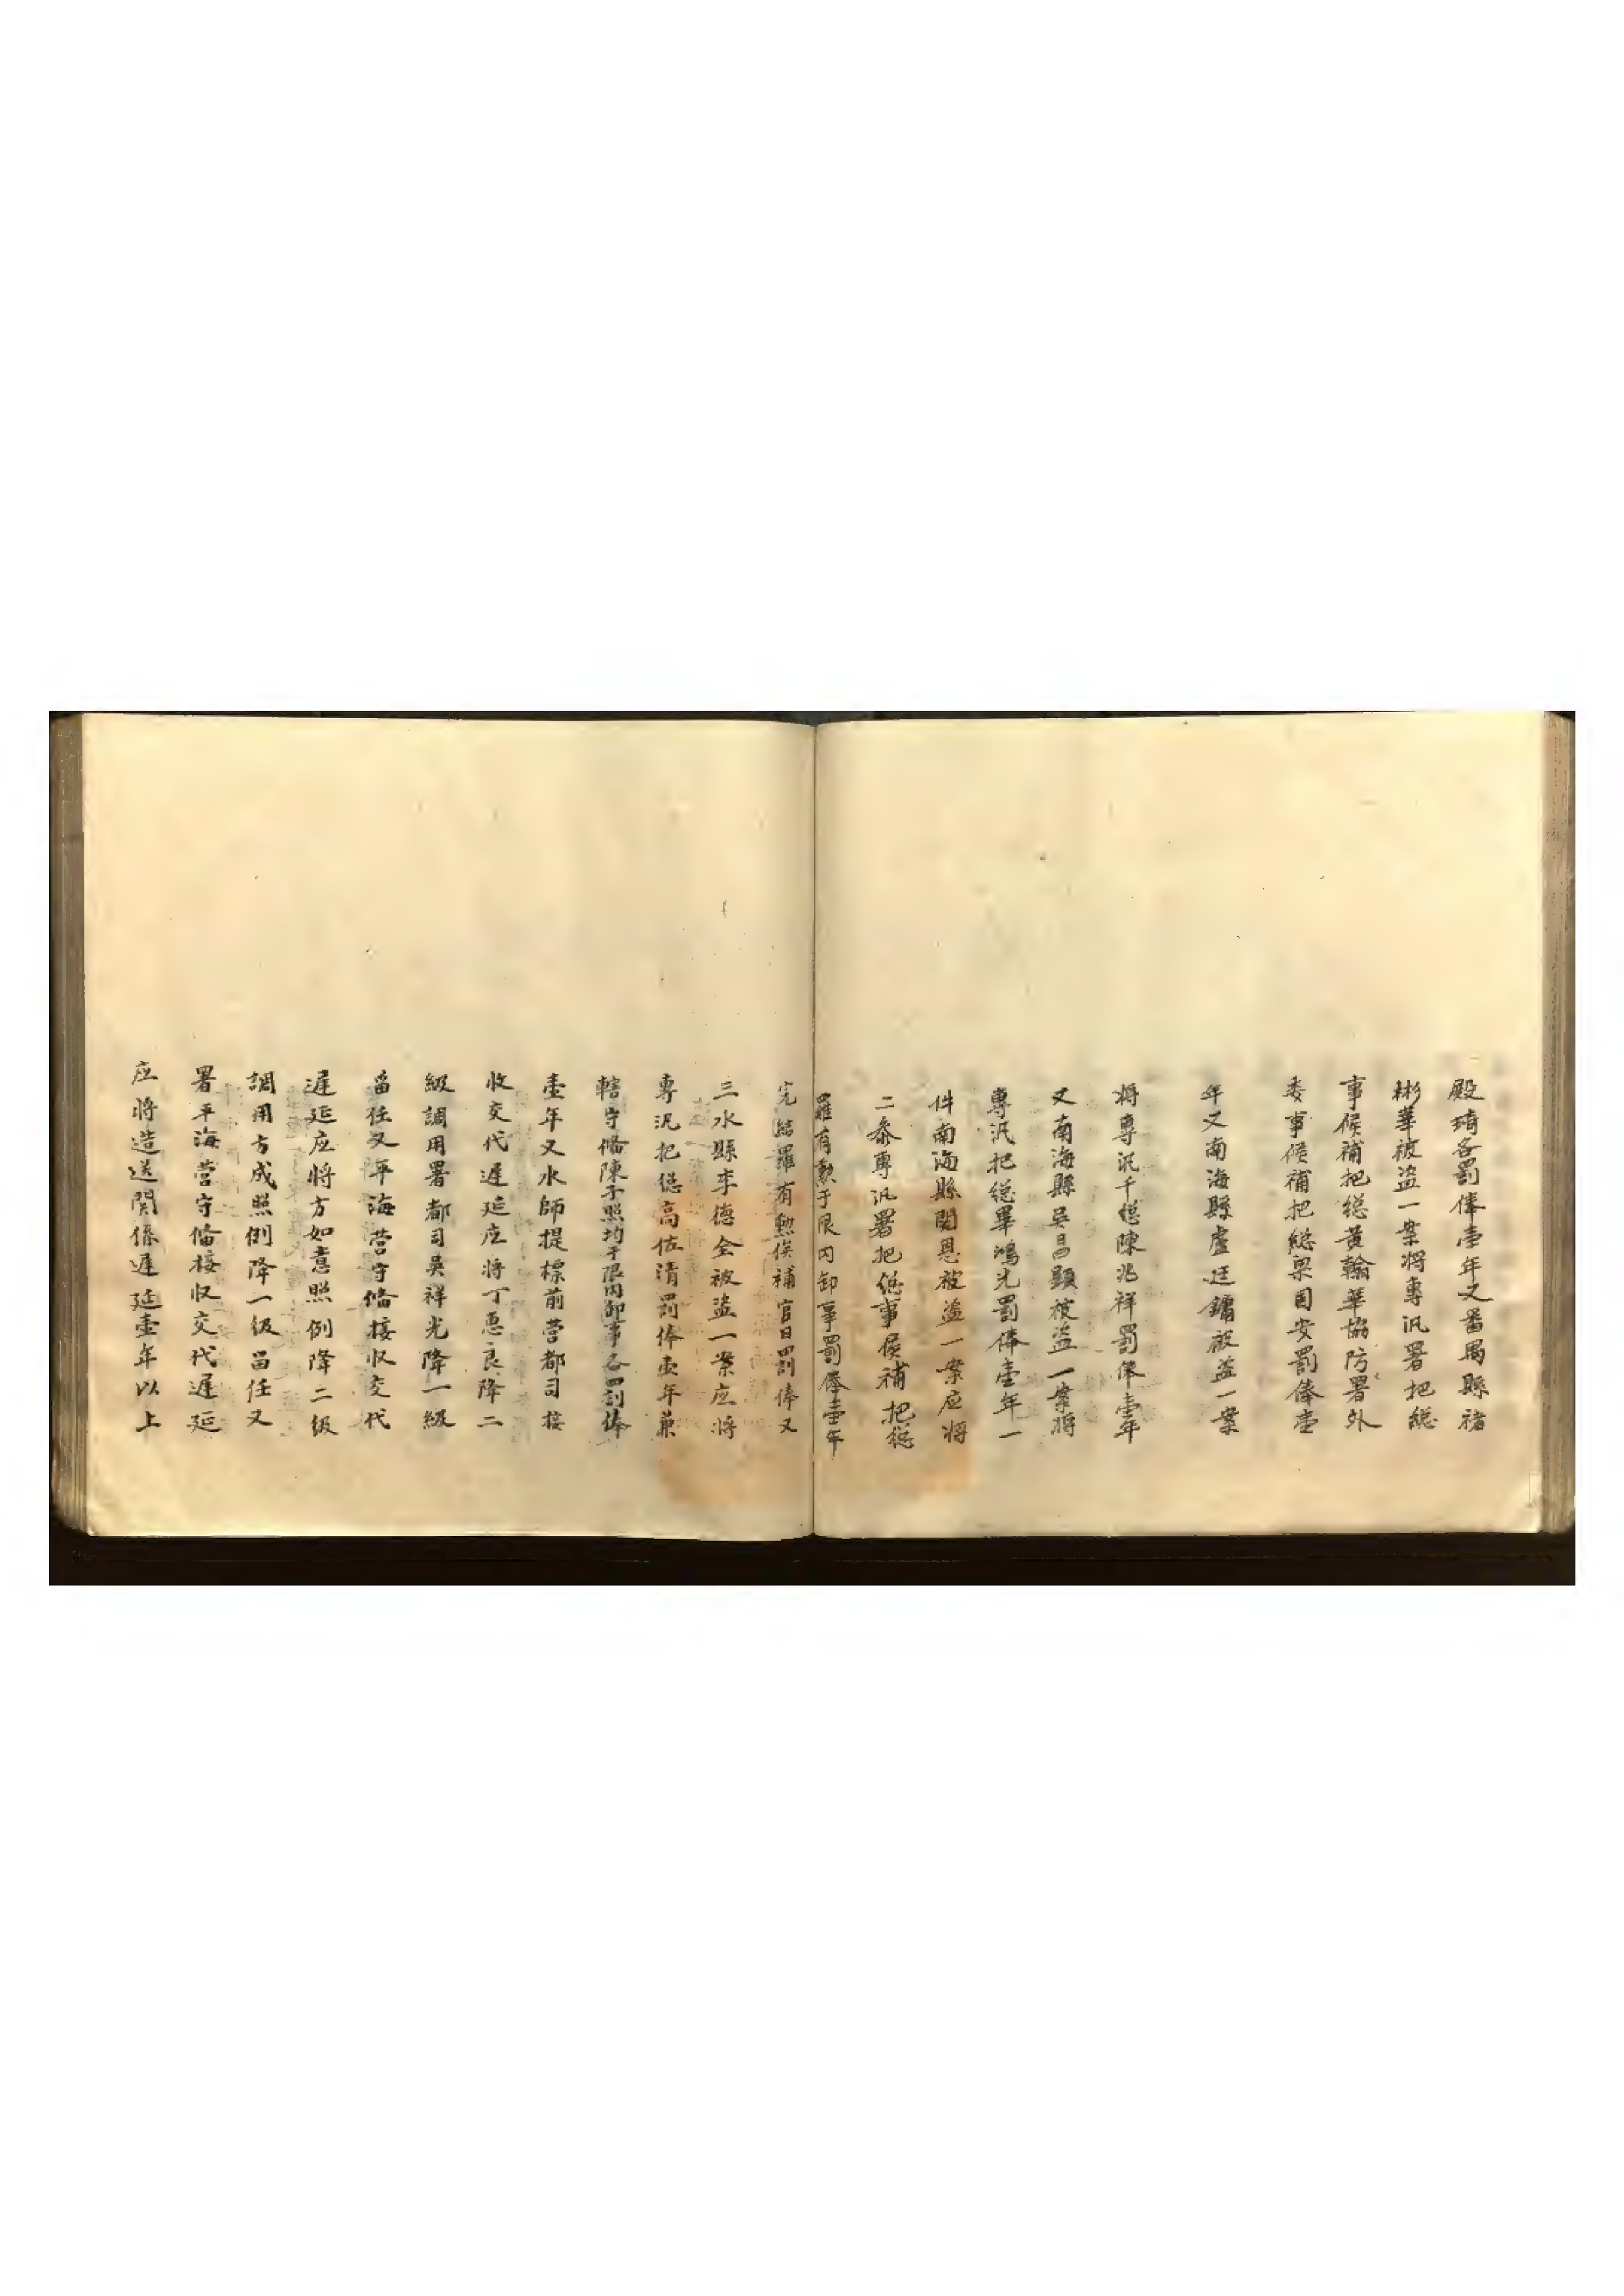 殿琦各罰俸壹年又番禺縣褚
彬華被盜一案將專汛署把総
事候補把総黃翰華協防署外
委事候補把総梁国安罰俸壹
年又南海縣盧廷鏞被盜一案
将專汛千総陳兆祥罰俸壹年
又南海縣吳昌顯被盜一案將
專汛把総畢鴻光罰俸壹年一
件南海縣関恩被盜一案应將
二叅專汛署把総事候補把総
羅有勲于限内卸事罰俸壹年
完結羅有勲俟補官日罰俸又
三水縣李德全被盜一案应將
專汛把総高佐清罰俸壹年兼
轄守俻陳子照均于限内卸事各罰俸
壹年又水師提標前营都司接
收交代遲延应將丁惠良降二
級調用署都司吳祥光降一級
畄任又平海营守俻接収交代
遲延应將方如意照例降二級
調用方成照例降一級畄任又
署平海营守俻接収交代遲延
应將造送関係遲延壹年以上